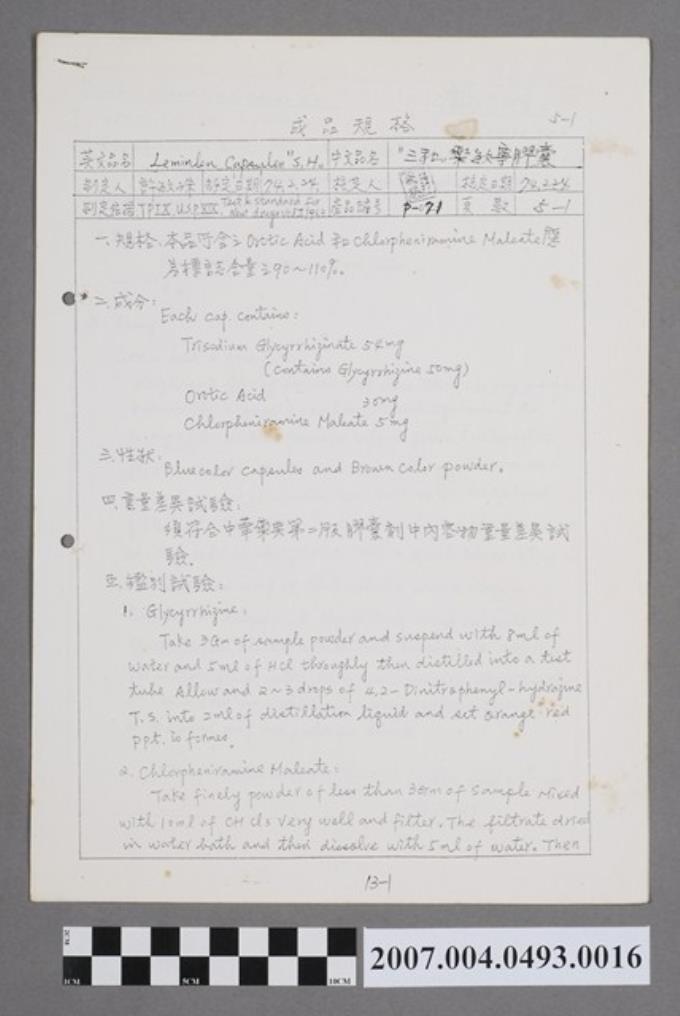 5-1
成品規格
英文品名 Leminlon Capsules "S.H. 中文品名 "三和"樂敏寧膠囊
制定人 制定日期 74.2.24 核定人 核定日期 74.2.24
制定依据 TPIX, USPXX, Test & standard for new drugs 產品編號 P-071 頁數 5-1
一.規格:本品所含之Orotic Acid和Chlorpheniramine Maleate應
為標誌含量之90~110%.
二.成分:
Each cap. contains:
Trisodium Glycyrrhizinate 54mg
(Contains Glycyrrhizine 50mg)
Orotic Acid 30mg
Chlorpheniramine Maleate 5mg
三.性狀:
Blue color capsules and Brown color powder.
四.重量差異試驗:
須符合中華藥典第二版膠囊劑中內容物重量差異試
驗.
五.鑑別試驗:
1. Glycyrrhizine:
Take 3Gm of sample powder and suspend with 8ml of
water and 5ml of HCl throughly then distilled into a test
tube Allow and 2~3 drops of 4,2-Dinitrophenyl-hydrazine
T.S. into 2ml of distillation liquid and set orange red
ppt. is formes.
2. Chlorpheniramine Maleate:
Take finely powder of less than 3Gm of Sample Mixed
with 10ml of CHCl3 Very well and filter. The filtrate dried
in water bath and then dissolve with 5ml of water. Then
13-1
2CM
0
1CM
5CM
10CM
2007.004.0493.0016